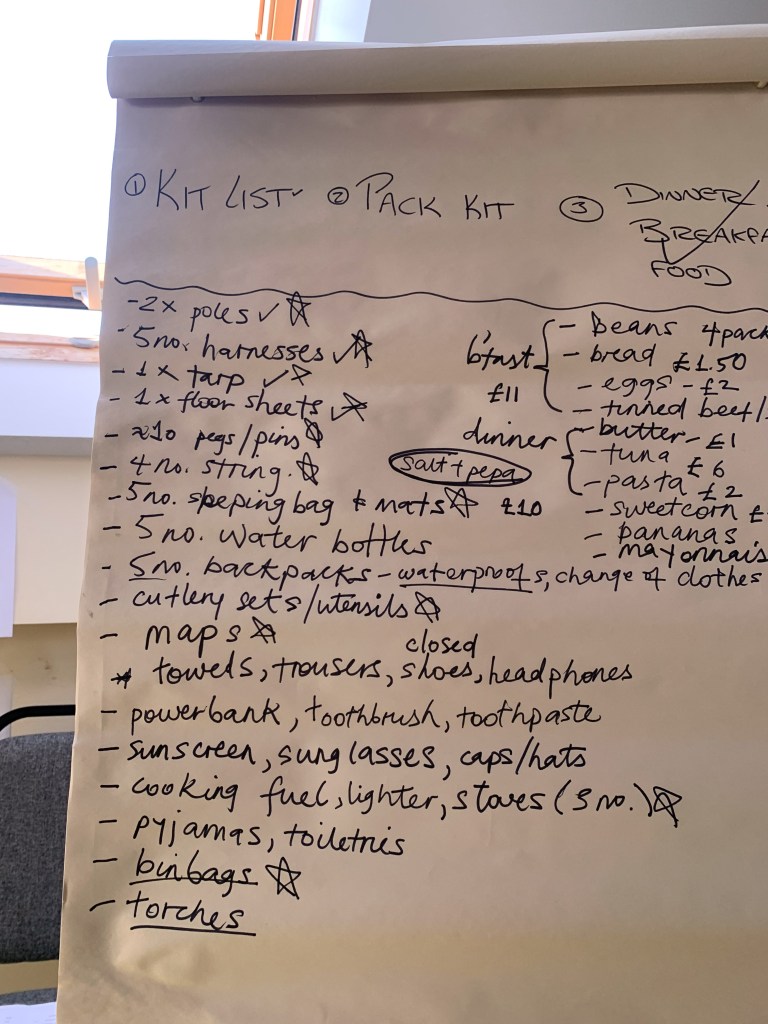 ① KIT LIST ✓ ② PACK KIT ③ DINNER/
BREAKFA
FOOD
- 2x poles ✓ ☆
- 5no. harnesses ✓ ☆
- 1x tarp ✓ ☆
- 1x floor sheets ✓ ☆
- ≈10 pegs/pins ☆
- 4 no. string. ☆
- 5no. sleeping bag & mats ☆ £10
- 5 no. water bottles
- 5no. backpacks - waterproofs, change of clothes
- cutlery sets/utensils ☆
- maps ☆
closed
* towels, trousers, shoes, headphones
- powerbank, toothbrush, toothpaste
- sunscreen, sunglasses, caps/hats
- cooking fuel, lighter, stoves (3 no.) ☆
- pyjamas, toiletries
- binbags ☆
- torches
b'fast
£11
- Beans 4pack
- bread £1.50
- eggs - £2
- tinned beef/
dinner
salt + pepa
- butter - £1
- tuna £6
- pasta £2
- sweetcorn £
- bananas
- mayonnais